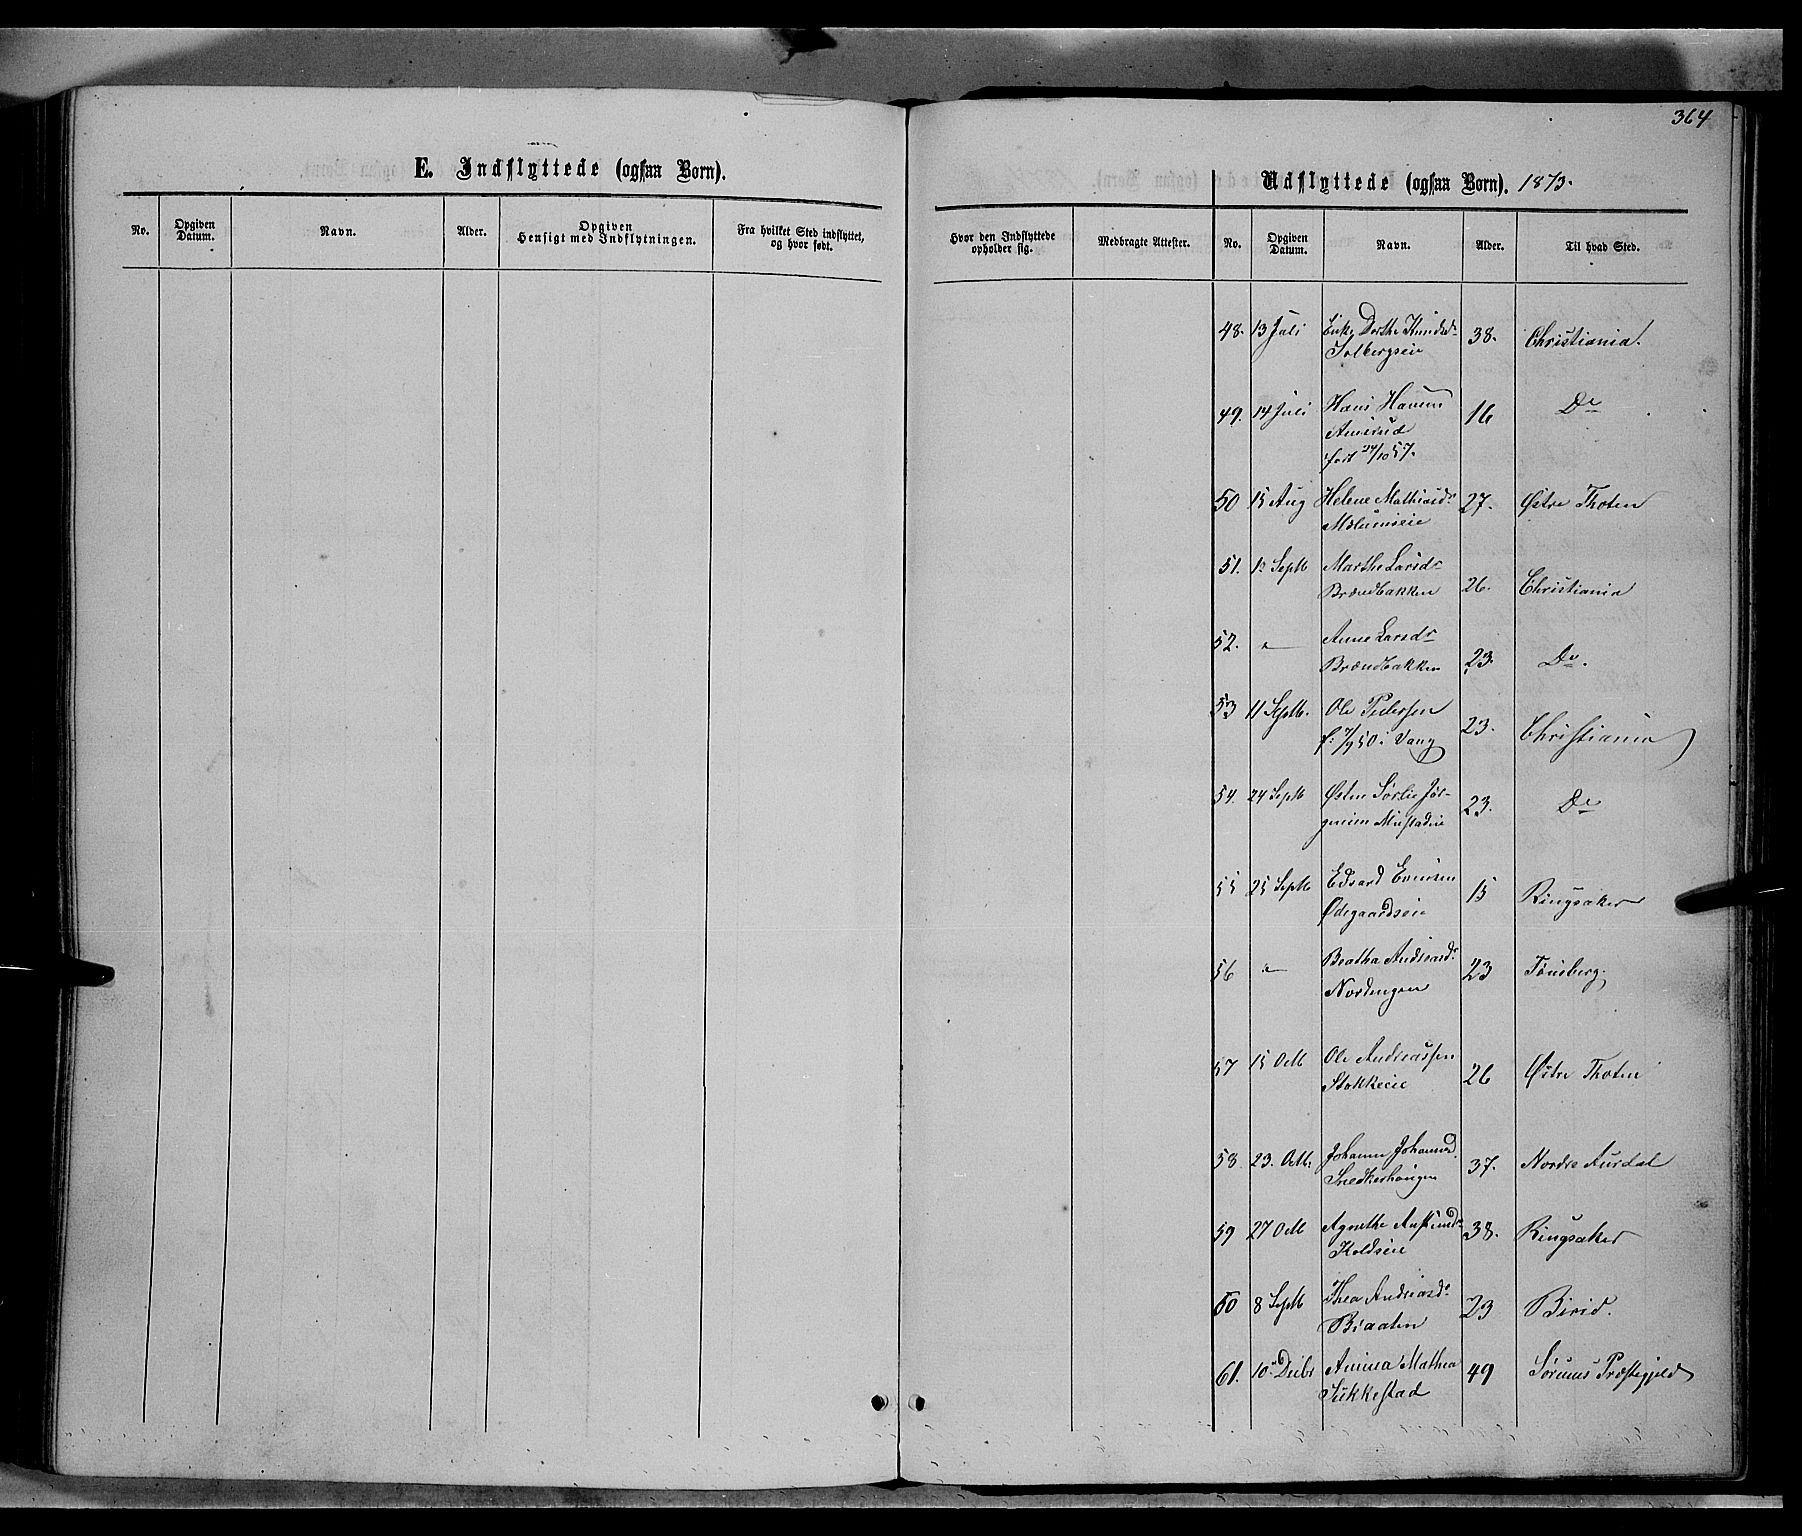 364
E. Indflyttede (ogsaa Børn).
No.
Opgiven Datum.
Navn.
Alder.
Opgiven Hensigt med Indflytningen.
Fra hvilket Sted indflyttet, og hvor født.
Udflyttede (ogsaa Børn). 1873.
Hvor den Indflyttede opholder sig.
Medbragte Attester.
No.
Opgiven Datum.
Navn.
Alder.
Til hvad Sted.
48. 13 Juli Enke Dorthe Knudsd. 38. Christiania.
Solbergseie
49. 14 Juli Hans Hansen 16 Do
født 24/10 57.
50 15 Aug Helene Mathiasdr 27. Østre Thoten
Mælumseie
51. 12 Septb Marthe Larsdr 26. Christiania
Brændbakken
52. " Anne Larsdr 23. Do.
Brændbakken
53 11 Septb. Ole Pedersen 23. Christiania
f: 7/9 50 i Vang
54. 24 Septb Østen Sørlie Jør- 23. Do
gensen Mustadeie
55 25 Septb Edvard Evensen 15 Ringsaker
Ødegaardseie
56 " Beatha Andreasdr 23 Tønsberg.
Nordengen
57 15 Octb Ole Andreassen 26 Østre Thoten
Stokkeeie
58 23. Octb: Johanne Johannesd. 37. Nordre Aurdal
Snedkerhaugen
59 27 Octb Agnethe Amundsdr 38. Ringsaker
Koldseie
60 8 Septb Thea Andreasdr 23 Birid.
Braaten
61. 10 Decbr Anina Mathea 49 Sørums Præstegjeld
Sukkestad